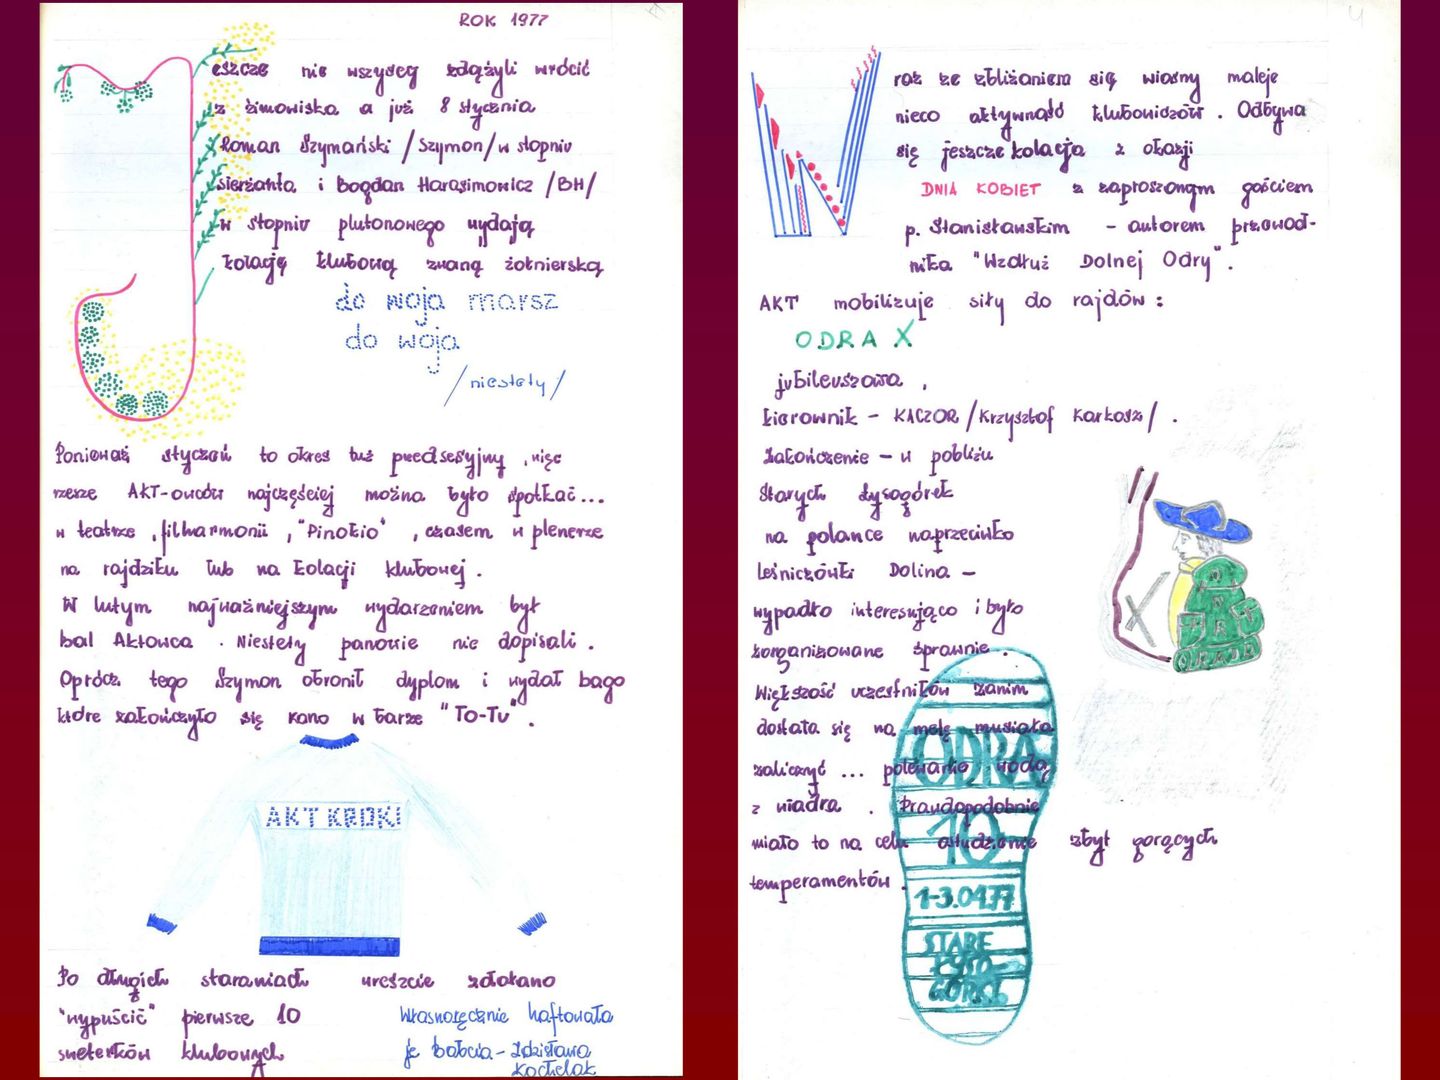 ROK 1977
Jeszcze nie wszyscy zdążyli wrócić
z zimowiska a już 8 stycznia
Roman Szymański /Szymon/ w stopniu
sierżanta i Bogdan Harasimowicz /BH/
w stopniu plutonowego wydają
kolację klubową zwaną żołnierską
do woja marsz
do woja
/niestety/
Ponieważ styczeń to okres tuż przedsesyjny, więc
rzesze AKT-owców najczęściej można było spotkać...
w teatrze, filharmonii, "Pinokio", czasem w plenerze
na rajdziku lub na kolacji klubowej.
W lutym najważniejszym wydarzeniem był
bal Aktowca. Niestety panowie nie dopisali.
Oprócz tego Szymon obronił dyplom i wydał bago
które zakończyło się rano w barze "To-Tu".
AKT KROKI
Po długich staraniach wreszcie zdołano
"wypuścić" pierwsze 10
sweterków klubowych
Własnoręcznie haftowała
je babcia - Zdzisława
Kochelak
Wraz ze zbliżaniem się wiosny maleje
nieco aktywność klubowiczów. Odbywa
się jeszcze kolacja z okazji
DNIA KOBIET z zaproszonym gościem
p. Stanisławskim - autorem przewod-
nika "Wzdłuż Dolnej Odry".
AKT mobilizuje siły do rajdów:
ODRA X
jubileuszowa,
kierownik - KACZOR /Krzysztof Karkosz/.
Zakończenie - w pobliżu
Starych Łysogórek
na polance naprzeciwko
leśniczówki Dolina -
wypadło interesująco i było
zorganizowane sprawnie.
Większość uczestników zanim
dostała się na metę musiała
zaliczyć ... polewanie wodą
z wiadra. Prawdopodobnie
miało to na celu ostudzenie zbyt gorących
temperamentów.
X
ODRA
ODRA
10
1-3.04.77
STARE
ŁYSO-
GÓRKI